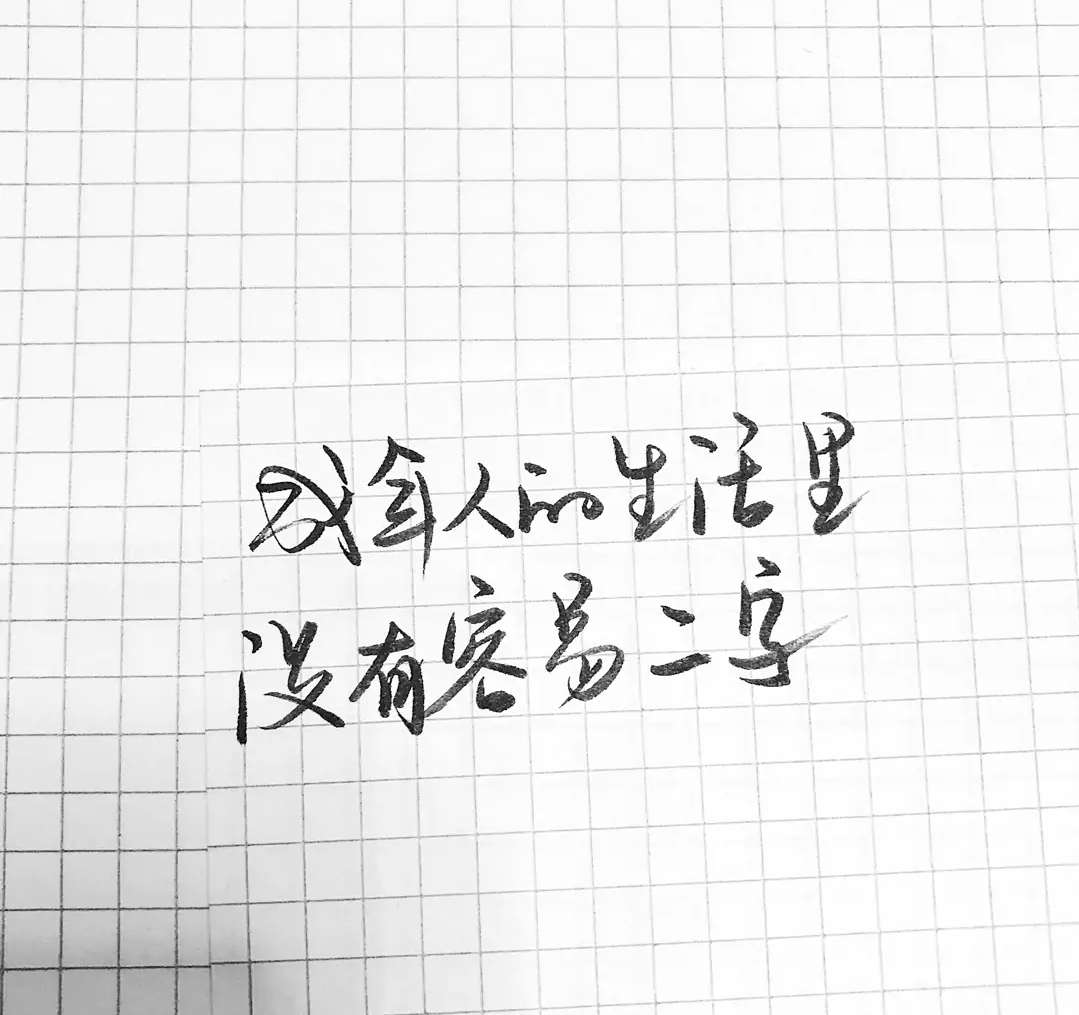 成年人的生活里
没有容易二字